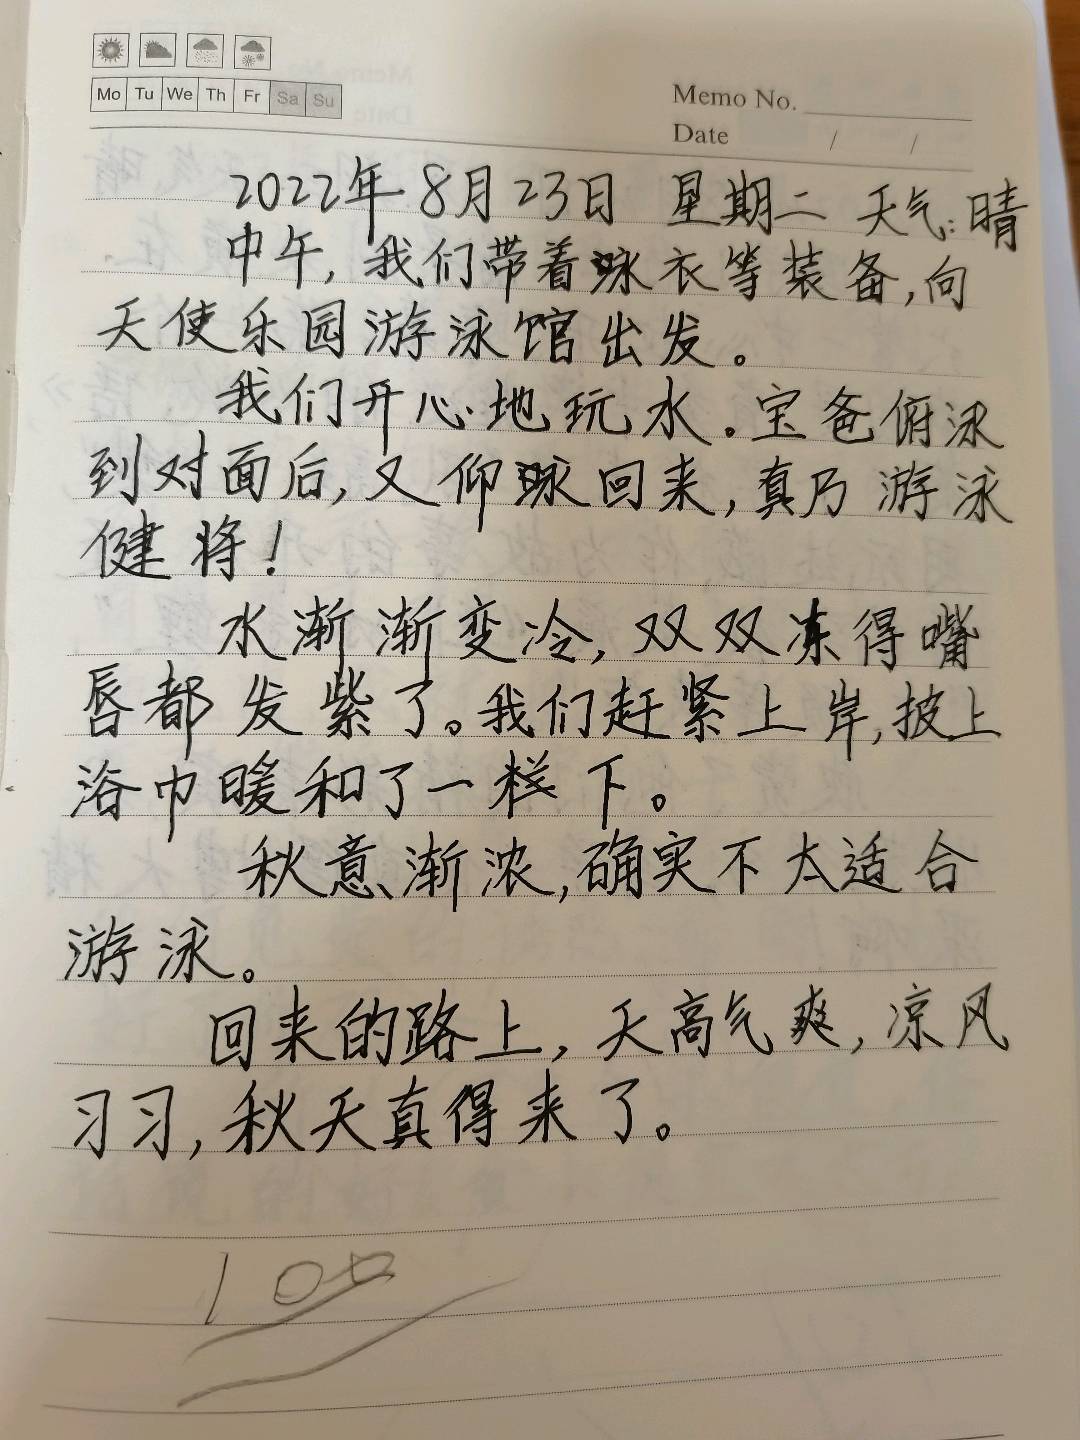 Mo Tu We Th Fr Sa Su
Memo No.
Date / /
2022年8月23日 星期二 天气:晴
中午,我们带着泳衣等装备,向
天使乐园游泳馆出发。
我们开心地玩水。宝爸俯泳
到对面后,又仰泳回来,真乃游泳
健将!
水渐渐变冷,双双冻得嘴
唇都发紫了。我们赶紧上岸,披上
浴巾暖和了一样下。
秋意渐浓,确实不太适合
游泳。
回来的路上,天高气爽,凉风
习习,秋天真得来了。
100